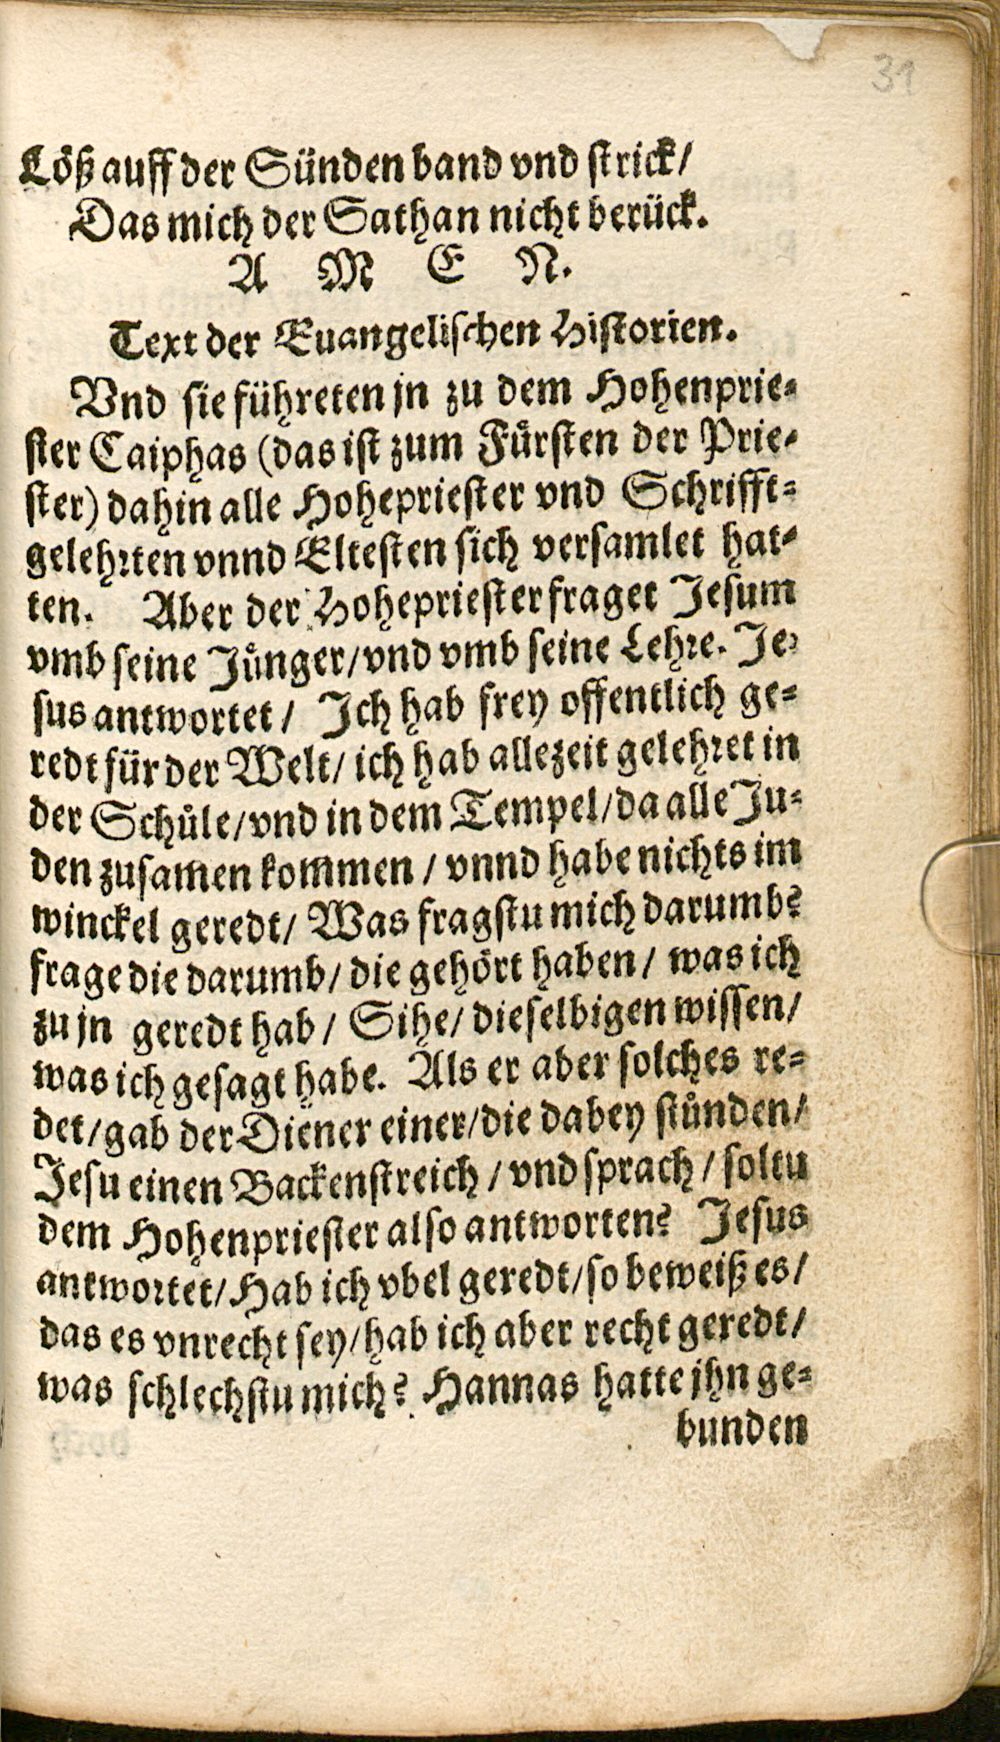 31
Löß auff der Sünden band vnd strick/
Das mich der Sathan nicht berück.
A M E N.
Text der Euangelischen Historien.
Vnd sie führeten jn zu dem Hohenprie-
ster Caiphas (das ist zum Fürsten der Prie-
ster) dahin alle Hohepriester vnd Schrifft-
gelehrten vnnd Eltesten sich versamlet hat-
ten. Aber der Hohepriester fraget Jesum
vmb seine Jünger/vnd vmb seine Lehre. Je-
sus antwortet/ Ich hab frey offentlich ge-
redt für der Welt/ ich hab allezeit gelehret in
der Schůle/vnd in dem Tempel/da alle Ju-
den zusamen kommen / vnnd habe nichts im
winckel geredt/ Was fragstu mich darumb?
frage die darumb/ die gehört haben/ was ich
zu jn geredt hab/ Sihe/ dieselbigen wissen/
was ich gesagt habe. Als er aber solches re-
det/gab der Diener einer/die dabey stůnden/
Jesu einen Backenstreich / vnd sprach / soltu
dem Hohenpriester also antworten? Jesus
antwortet/Hab ich vbel geredt/so beweiß es/
das es vnrecht sey/hab ich aber recht geredt/
was schlechstu mich? Hannas hatte jhn ge-
bunden